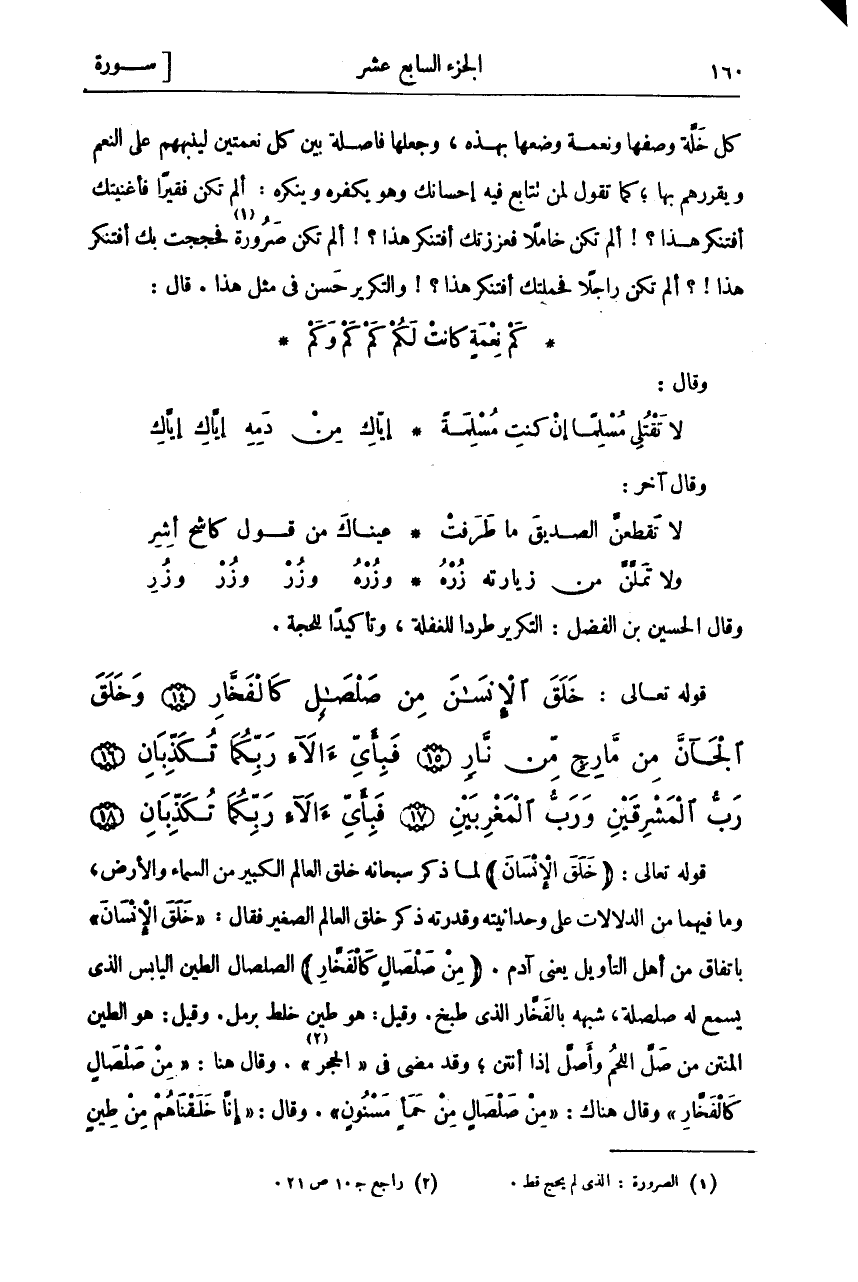 ١٦٠ الجزء السابع عشر [ سـورة
كل خَلَّة وصفها ونعمة وضعها بهذه ، وجعلها فاصلة بين كل نعمتين لينبههم على النعم
ويقررهم بها ؛ كما تقول لمن تتابع فيه إحسانك وهو يكفره وينكره : ألم تكن فقيرًا فأغنيتك
أفتنكر هذا ؟ ! ألم تكن خاملًا فعززتك أفتنكر هذا ؟ ! ألم تكن صَرُورة (١) فحججت بك أفتنكر
هذا ! ؟ ألم تكن راجلًا فحملتك أفتنكر هذا ؟ ! والتكرير حَسن فى مثل هذا . قال :
* كَمْ نِعْمَةٍ كانتْ لَكُمْ كَمْ كَمْ وَكَمْ *
وقال :
لا تَقْتُلِى مُسْلِمًا إنْ كنتِ مُسْلِمَةً * إيّاكِ مِنْ دَمِهِ إيَّاكِ إيَّاكِ
وقال آخر :
لا تقطعنَّ الصديقَ ما طَرَفتْ * عيناكَ من قول كاشحٍ أشِرِ
ولا تَمَلَّنَّ من زيارته زُرْهُ * وزُرْهُ وزُرْ وزُرْ وزُرِ
وقال الحسين بن الفضل : التكرير طردا للغفلة ، وتأكيدًا للحجة .
قوله تعالى : خَلَقَ ٱلْإِنسَٰنَ مِن صَلْصَٰلٍ كَٱلْفَخَّارِ ﴿١٤﴾ وَخَلَقَ
ٱلْجَآنَّ مِن مَّارِجٍ مِّن نَّارٍ ﴿١٥﴾ فَبِأَىِّ ءَالَآءِ رَبِّكُمَا تُكَذِّبَانِ ﴿١٦﴾
رَبُّ ٱلْمَشْرِقَيْنِ وَرَبُّ ٱلْمَغْرِبَيْنِ ﴿١٧﴾ فَبِأَىِّ ءَالَآءِ رَبِّكُمَا تُكَذِّبَانِ ﴿١٨﴾
قوله تعالى : ﴿خَلَقَ الْإِنْسَانَ﴾ لما ذكر سبحانه خلق العالم الكبير من السماء والأرض ،
وما فيهما من الدلالات على وحدانيته وقدرته ذكر خلق العالم الصغير فقال : «خَلَقَ الْإِنْسَانَ»
باتفاق من أهل التأويل يعنى آدم . ﴿مِنْ صَلْصَالٍ كَالْفَخَّارِ﴾ الصلصال الطين اليابس الذى
يسمع له صلصلة ، شبهه بالفَخَّار الذى طبخ . وقيل : هو طين خلط برمل . وقيل : هو الطين
المنتن من صَلَّ اللحمُ وأَصَلَّ إذا أنتن ؛ وقد مضى فى « الحجر (٢) » . وقال هنا : « مِنْ صَلْصَالٍ
كَالْفَخَّارِ» وقال هناك : «مِنْ صَلْصَالٍ مِنْ حَمَأٍ مَسْنُونٍ» . وقال : « إنَّا خَلَقْنَاهُمْ مِنْ طِينٍ
(١) الصرورة : الذى لم يحج قط . (٢) راجع جـ ١٠ ص ٢١ .